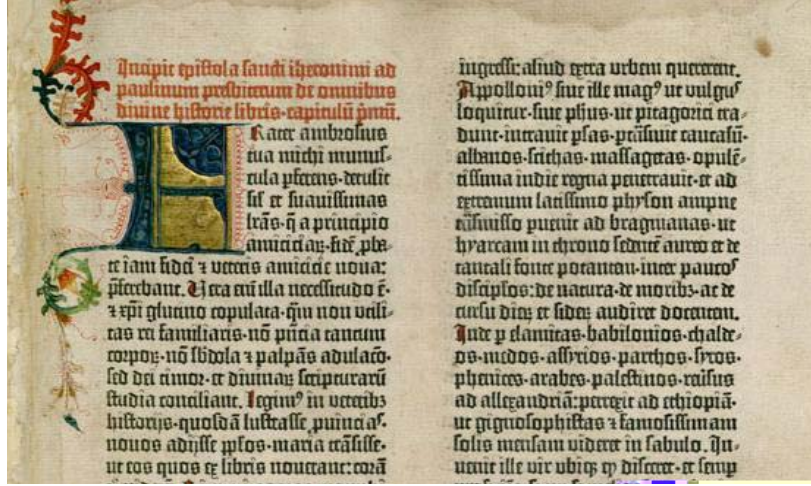 Incipit epistola sancti iheronimi ad
paulinum presbiterum de omnibus
divine historie libris·capitulū pmū.
Frater ambrosius
tua michi munus-
cula pferens·detulit
sil' et suavissimas
lrās·q̄ a principio
amiciciaꝝ·fidē pba-
te iam fidei ⁊ veteris amicicie nova:
pferebant. Vera eni̅ illa necessitudo ē·
⁊ xpi glutino copulata·qm non vtili-
tas rei familiaris·nō pn̄cia tantum
corpoꝝ·nō sb̄dola ⁊ palpās adulacō·
sed dei timor·et divinaꝝ scripturarū
studia conciliant. Legimꝰ in veteribꝫ
historijs·quosdā lustrasse provinciaˢ·
novos adijsse pplos·maria trāsisse·
ut eos quos ex libris noverant: corā
ingressi: aliud extra urbem quererent.
Appolloniꝰ sive ille magꝰ ut vulguˢ
loquitur·sive phus·ut pitagorici tra-
dunt·intravit psas·ptrāsivit caucasū·
albanos·scithas·massagetas·opulē-
tissima indie regna penetravit·et ad
extremum latissimo physon ampne
trāsmisso pvenit ad bragmanas·ut
hyarcam in throno sedentē aureo et de
tantali fonte potantem·inter paucoˢ
discipl'os: de natura·de moribꝫ·ac de
cursu dieꝝ et sideꝝ audiret docentem.
Inde p elamitas·babilonios·chalde-
os·medos·assyrios·parthos·syros·
phenices·arabes·palestinos·reversus
ad allexandriā: perrexit ad ethiopiā·
ut gignosophistas ⁊ famosissimam
solis mensam videret in sabulo. In-
venit ille vir ubiqꝫ qd disceret·et semp